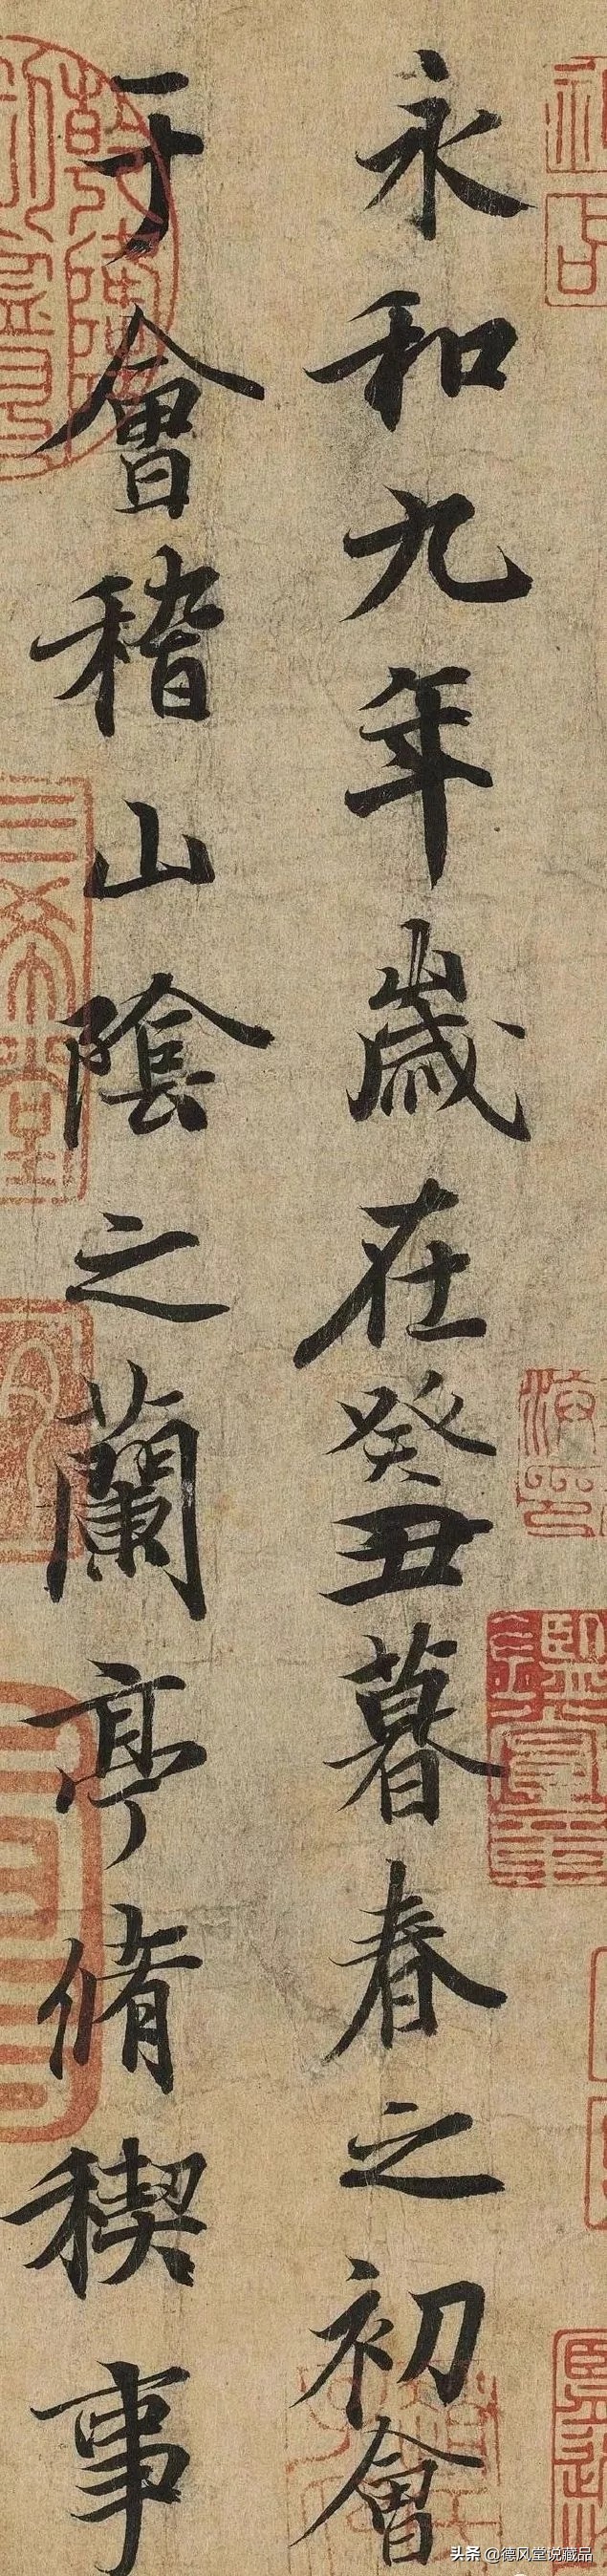 永和九年歲在癸丑暮春之初會
于會稽山陰之蘭亭脩稧事
三希堂
頭条 @德风堂说藏品